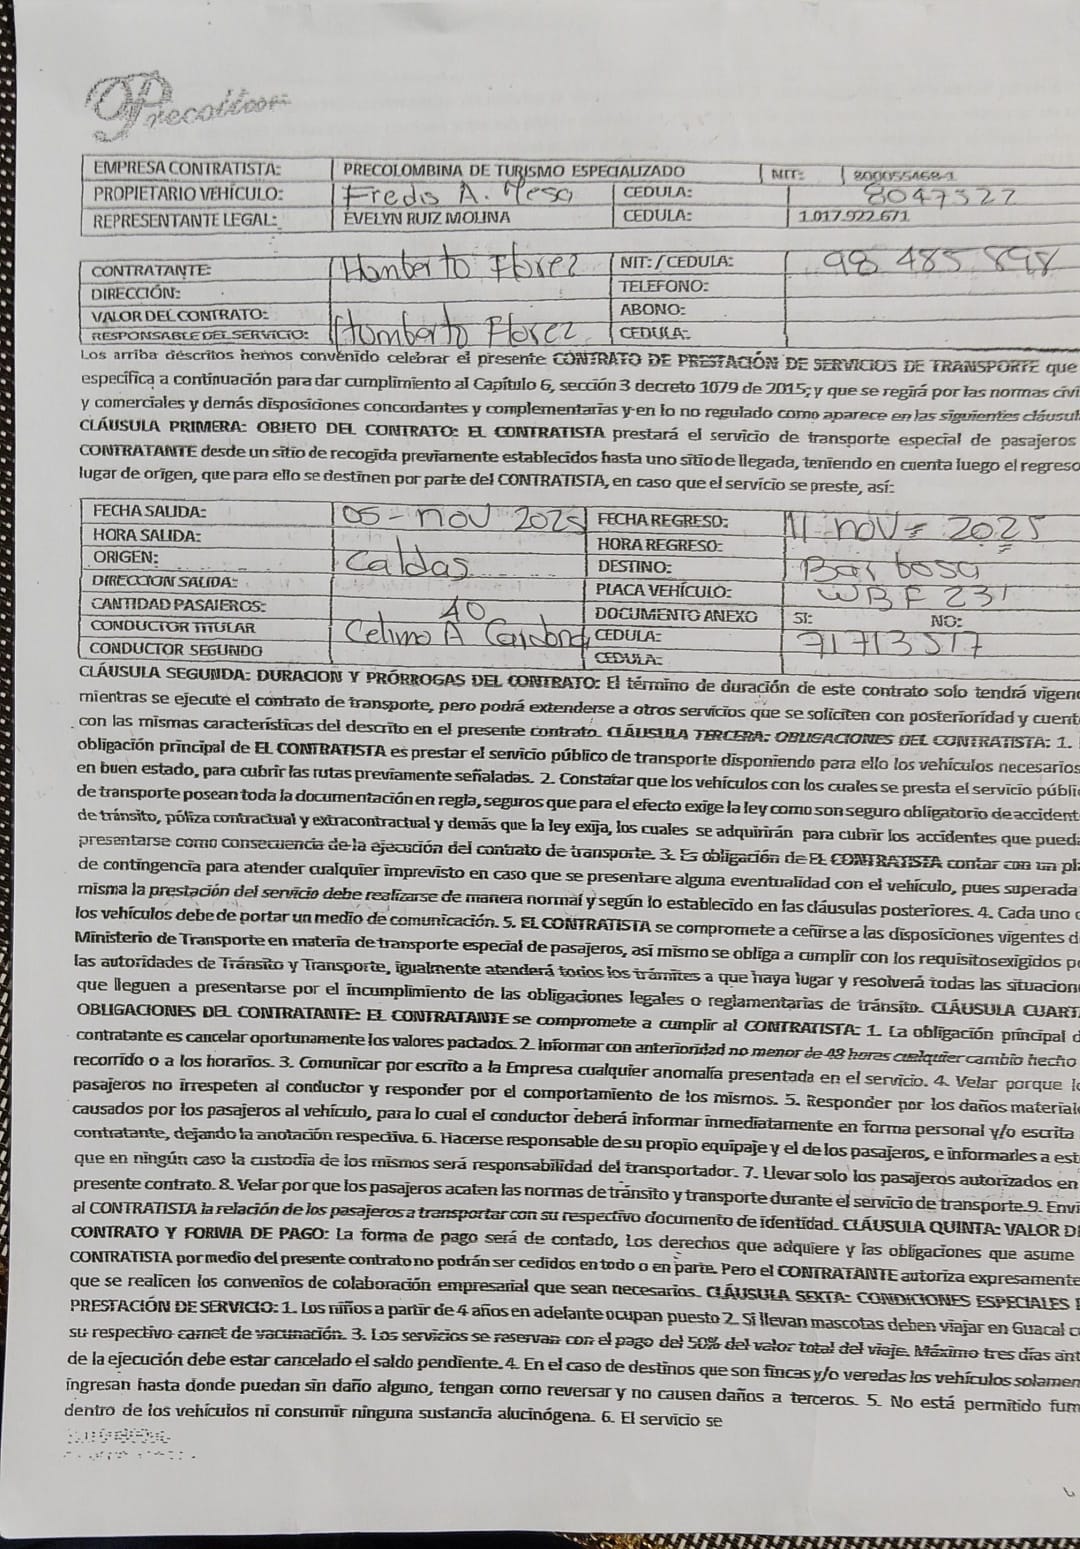 Precoltur
EMPRESA CONTRATISTA: PRECOLOMBINA DE TURISMO ESPECIALIZADO NIT: 800055468-1
PROPIETARIO VEHÍCULO: Fredis A. Mesa CEDULA: 8047322
REPRESENTANTE LEGAL: EVELYN RUIZ MOLINA CEDULA: 1.017.922.671
CONTRATANTE: Humberto Florez NIT: / CEDULA: 98 485 898
DIRECCIÓN: TELEFONO:
VALOR DEL CONTRATO: ABONO:
RESPONSABLE DEL SERVICIO: Humberto Florez CEDULA:
Los arriba descritos hemos convenido celebrar el presente CONTRATO DE PRESTACIÓN DE SERVICIOS DE TRANSPORTE que
especifica a continuación para dar cumplimiento al Capítulo 6, sección 3 decreto 1079 de 2015; y que se regirá por las normas civi
y comerciales y demás disposiciones concordantes y complementarias y en lo no regulado como aparece en las siguientes cláusul
CLÁUSULA PRIMERA: OBJETO DEL CONTRATO: EL CONTRATISTA prestará el servicio de transporte especial de pasajeros
CONTRATANTE desde un sitio de recogida previamente establecidos hasta uno sitio de llegada, teniendo en cuenta luego el regreso
lugar de origen, que para ello se destinen por parte del CONTRATISTA, en caso que el servicio se preste, así:
FECHA SALIDA: 05 - nov 2025 FECHA REGRESO: 11 nov - 2025
HORA SALIDA: HORA REGRESO:
ORIGEN: Caldas DESTINO: Barbosa
DIRECCION SALIDA: PLACA VEHÍCULO: WBF 231
CANTIDAD PASAJEROS: 40 DOCUMENTO ANEXO SI: NO:
CONDUCTOR TITULAR Celimo A Cardona CEDULA: 71713517
CONDUCTOR SEGUNDO CEDULA:
CLÁUSULA SEGUNDA: DURACION Y PRÓRROGAS DEL CONTRATO: El término de duración de este contrato solo tendrá vigenc
mientras se ejecute el contrato de transporte, pero podrá extenderse a otros servicios que se soliciten con posterioridad y cuent
con las mismas características del descrito en el presente contrato. CLÁUSULA TERCERA: OBLIGACIONES DEL CONTRATISTA: 1.
obligación principal de EL CONTRATISTA es prestar el servicio público de transporte disponiendo para ello los vehículos necesarios
en buen estado, para cubrir las rutas previamente señaladas. 2. Constatar que los vehículos con los cuales se presta el servicio públi
de transporte posean toda la documentación en regla, seguros que para el efecto exige la ley como son seguro obligatorio de accident
de tránsito, póliza contractual y extracontractual y demás que la ley exija, los cuales se adquirirán para cubrir los accidentes que pueda
presentarse como consecuencia de la ejecución del contrato de transporte. 3. Es obligación de EL CONTRATISTA contar con un pla
de contingencia para atender cualquier imprevisto en caso que se presentare alguna eventualidad con el vehículo, pues superada
misma la prestación del servicio debe realizarse de manera normal y según lo establecido en las cláusulas posteriores. 4. Cada uno d
los vehículos debe de portar un medio de comunicación. 5. EL CONTRATISTA se compromete a ceñirse a las disposiciones vigentes d
Ministerio de Transporte en materia de transporte especial de pasajeros, así mismo se obliga a cumplir con los requisitosexigidos po
las autoridades de Tránsito y Transporte, igualmente atenderá todos los trámites a que haya lugar y resolverá todas las situacion
que lleguen a presentarse por el incumplimiento de las obligaciones legales o reglamentarias de tránsito. CLÁUSULA CUART
OBLIGACIONES DEL CONTRATANTE: EL CONTRATANTE se compromete a cumplir al CONTRATISTA: 1. La obligación principal d
contratante es cancelar oportunamente los valores pactados. 2. Informar con anterioridad no menor de 48 horas cualquier cambio hecho
recorrido o a los horarios. 3. Comunicar por escrito a la Empresa cualquier anomalía presentada en el servicio. 4. Velar porque lo
pasajeros no irrespeten al conductor y responder por el comportamiento de los mismos. 5. Responder por los daños materiale
causados por los pasajeros al vehículo, para lo cual el conductor deberá informar inmediatamente en forma personal y/o escrita
contratante, dejando la anotación respectiva. 6. Hacerse responsable de su propio equipaje y el de los pasajeros, e informarles a est
que en ningún caso la custodia de los mismos será responsabilidad del transportador. 7. Llevar solo los pasajeros autorizados en
presente contrato. 8. Velar por que los pasajeros acaten las normas de tránsito y transporte durante el servicio de transporte.9. Envi
al CONTRATISTA la relación de los pasajeros a transportar con su respectivo documento de identidad. CLÁUSULA QUINTA: VALOR DE
CONTRATO Y FORMA DE PAGO: La forma de pago será de contado, Los derechos que adquiere y las obligaciones que asume
CONTRATISTA por medio del presente contrato no podrán ser cedidos en todo o en parte. Pero el CONTRATANTE autoriza expresamente
que se realicen los convenios de colaboración empresarial que sean necesarios. CLÁUSULA SEXTA: CONDICIONES ESPECIALES
PRESTACIÓN DE SERVICIO: 1. Los niños a partir de 4 años en adelante ocupan puesto 2. Si llevan mascotas deben viajar en Guacal c
su respectivo carnet de vacunación. 3. Los servicios se reservan con el pago del 50% del valor total del viaje. Máximo tres días ant
de la ejecución debe estar cancelado el saldo pendiente. 4. En el caso de destinos que son fincas y/o veredas los vehículos solamen
ingresan hasta donde puedan sin daño alguno, tengan como reversar y no causen daños a terceros. 5. No está permitido fum
dentro de los vehículos ni consumir ninguna sustancia alucinógena. 6. El servicio se